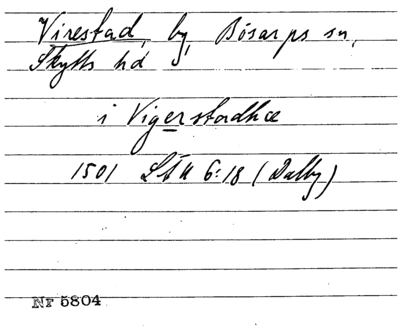 Virestad, by, Bösarps sn,
Skytts hd
i Vigerstadhæ
1501 LÄU 6:18 (Dalby)
Nr 5804